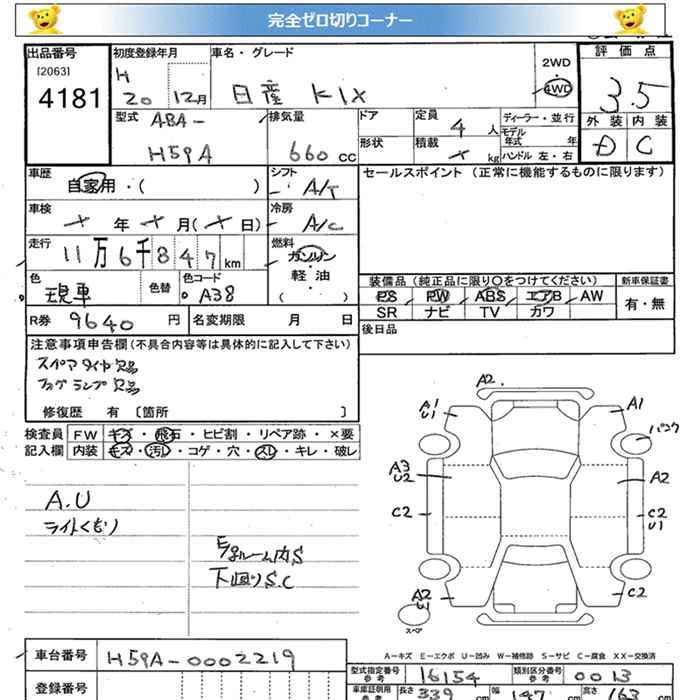 完全ゼロ切りコーナー
出品番号 初度登録年月 車名・グレード 評価点
[2063] H 2WD
4181 20 12月 日産 KIX 4WD 3.5
型式 ABA- 排気量 ドア 定員 4人 ディーラー・並行 外装 内装
H59A 660cc 形状 積載 kg モデル年式 年 D C
ハンドル 左・右
車歴 シフト セールスポイント (正常に機能するものに限ります)
自家用・( ) A/T
車検 冷房
年 月( 日) A/C
走行 燃料
11万6千847km ガソリン
軽油
( )
色 色替 色コード 装備品(純正品に限り○をつけてください) 新車保証書
現車 A38 PS PW ABS エアB AW 有・無
SR ナビ TV カワ
R券 9640円 名変期限 月 日 後日品
注意事項申告欄(不具合内容等は具体的に記入して下さい)
スペアタイヤ欠品
フォグランプ欠品
修復歴 有 〔箇所 〕
検査員 FW キズ・飛石・ヒビ割・リペア跡・×要
記入欄 内装 キズ・汚れ・コゲ・穴・スレ・キレ・破レ
A2.
A1
U1
A1
パンク
A3
U2
A2
C2
C2
U1
A2
U1
C2
スペア
A.U
ライトくもり
E/gルーム内S
下回りS.C
A-キズ E-エクボ U-凹み W-補修跡 S-サビ C-腐食 XX-交換済
車台番号 H59A-0002219
型式指定番号 参考 16154 類別区分番号 参考 0013
登録番号 車庫証明用 参考 長さ 339cm 幅 147cm 高さ 163cm